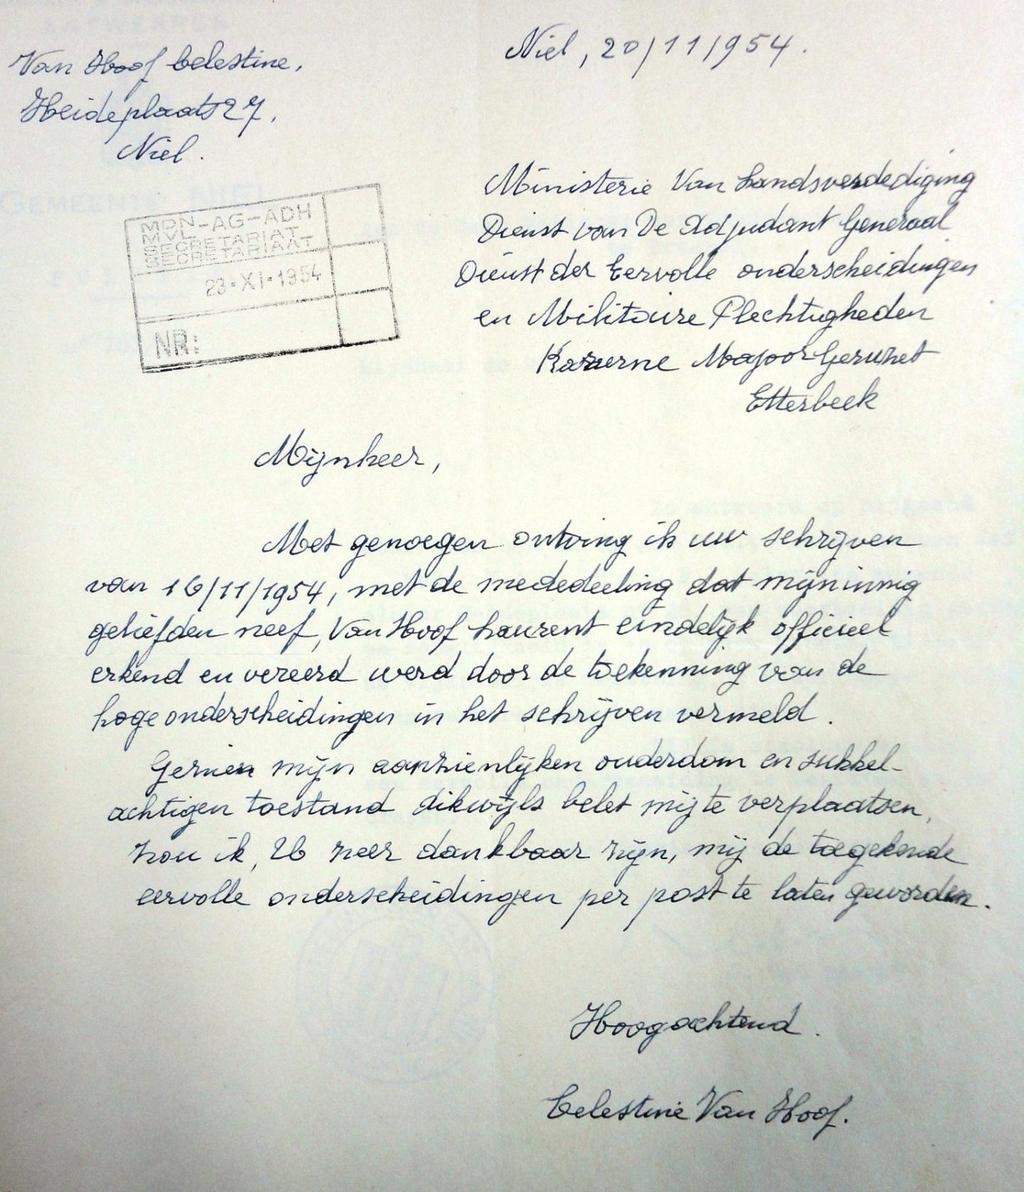 Van Hoof Celestine,
Heideplaats 27,
Niel.
Niel, 20/11/1954.
MDN-AG-ADH
MVL
SECRETARIAT
SECRETARIAAT
23-XI-1954
NR:
GEMEENTE NIEL
Ministerie Van Landsverdediging
Dienst van De Adjudant Generaal
Dienst der Eervolle onderscheidingen
en Militaire Plechtigheden
Kazerne Majoor Géruzet
Etterbeek
Mijnheer,
Met genoegen ontving ik uw schrijven
van 16/11/1954, met de mededeeling dat mijn innig
geliefden neef, Van Hoof Laurent eindelijk officieel
erkend en vereerd werd door de toekenning van de
hoge onderscheidingen in het schrijven vermeld.
Gezien mijn aanzienlijken ouderdom en sukkel-
achtigen toestand dikwijls belet mij te verplaatsen,
zou ik, Ub zeer dankbaar zijn, mij de toegekende
eervolle onderscheidingen per post te laten geworden.
Hoogachtend.
Celestine Van Hoof.